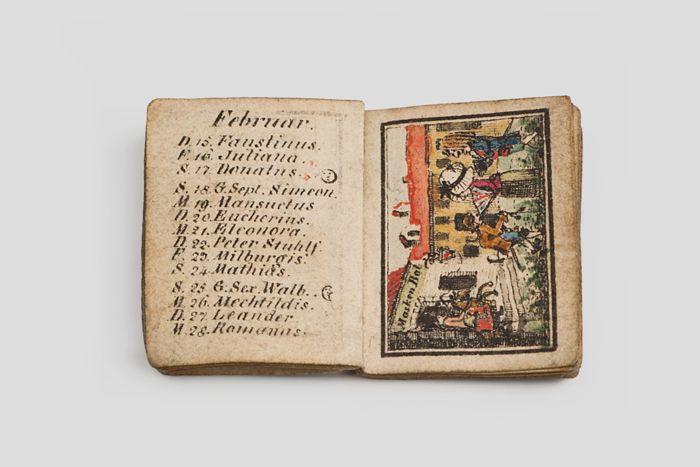 Februar.
D. 15. Faustinus.
F. 16. Juliana.
S. 17. Donatus.
S. 18. G. Sept. Simeon.
M. 19. Mansuetus
D. 20. Eucherius.
M. 21. Eleonora.
D. 22. Peter Stuhlf.
F. 23. Milburgis.
S. 24. Mathias.
S. 25. G. Sex. Walb.
M. 26. Mechtildis.
D. 27. Leander
M. 28. Romanus.